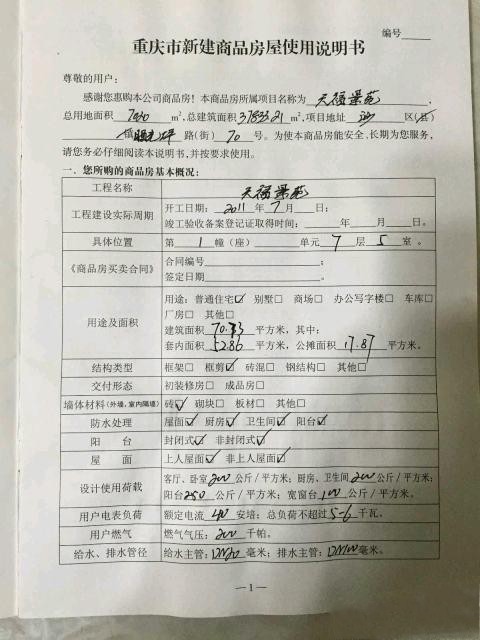 编号
重庆市新建商品房屋使用说明书
尊敬的用户：
感谢您惠购本公司商品房！本商品房所属项目名称为 天福景苑 ，
总用地面积 m²，总建筑面积 37833.21 m²，项目地址 沙 区（县）
镇 路（街） 70 号。为使本商品房能安全、长期为您服务，
请您务必仔细阅读本说明书，并按要求使用。
一、您所购的商品房基本概况：
工程名称 天福景苑
工程建设实际周期 开工日期： 2011 年 7 月 日；
竣工验收备案登记证取得时间： 年 月 日；
具体位置 第 1 幢（座） 单元 7 层 5 室 。
《商品房买卖合同》 合同编号 ；
签定日期 。
用途及面积 用途：普通住宅☑ 别墅□ 商场□ 办公写字楼□ 车库□
厂房□ 其他□
建筑面积 70.73 平方米，其中：
套内面积 52.86 平方米，公摊面积 17.87 平方米。
结构类型 框架□ 框剪☑ 砖混□ 钢结构□ 其他□
交付形态 初装修房□ 成品房□
墙体材料（外墙，室内隔墙） 砖☑ 砌块□ 板材□ 其他□
防水处理 屋面☑ 厨房☑ 卫生间☑ 阳台☑
阳 台 封闭式☑ 非封闭式☑
屋 面 上人屋面☑ 非上人屋面☑
设计使用荷载 客厅、卧室 200 公斤／平方米；厨房、卫生间 200 公斤／平方米；
阳台 250 公斤／平方米；宽窗台 100 公斤／平方米。
用户电表负荷 额定电流 40 安培；总负荷不超过 5-6 千瓦。
用户燃气 燃气气压： 200 千帕。
给水、排水管径 给水主管： DN20 毫米；排水主管： DN100 毫米。
— 1 —